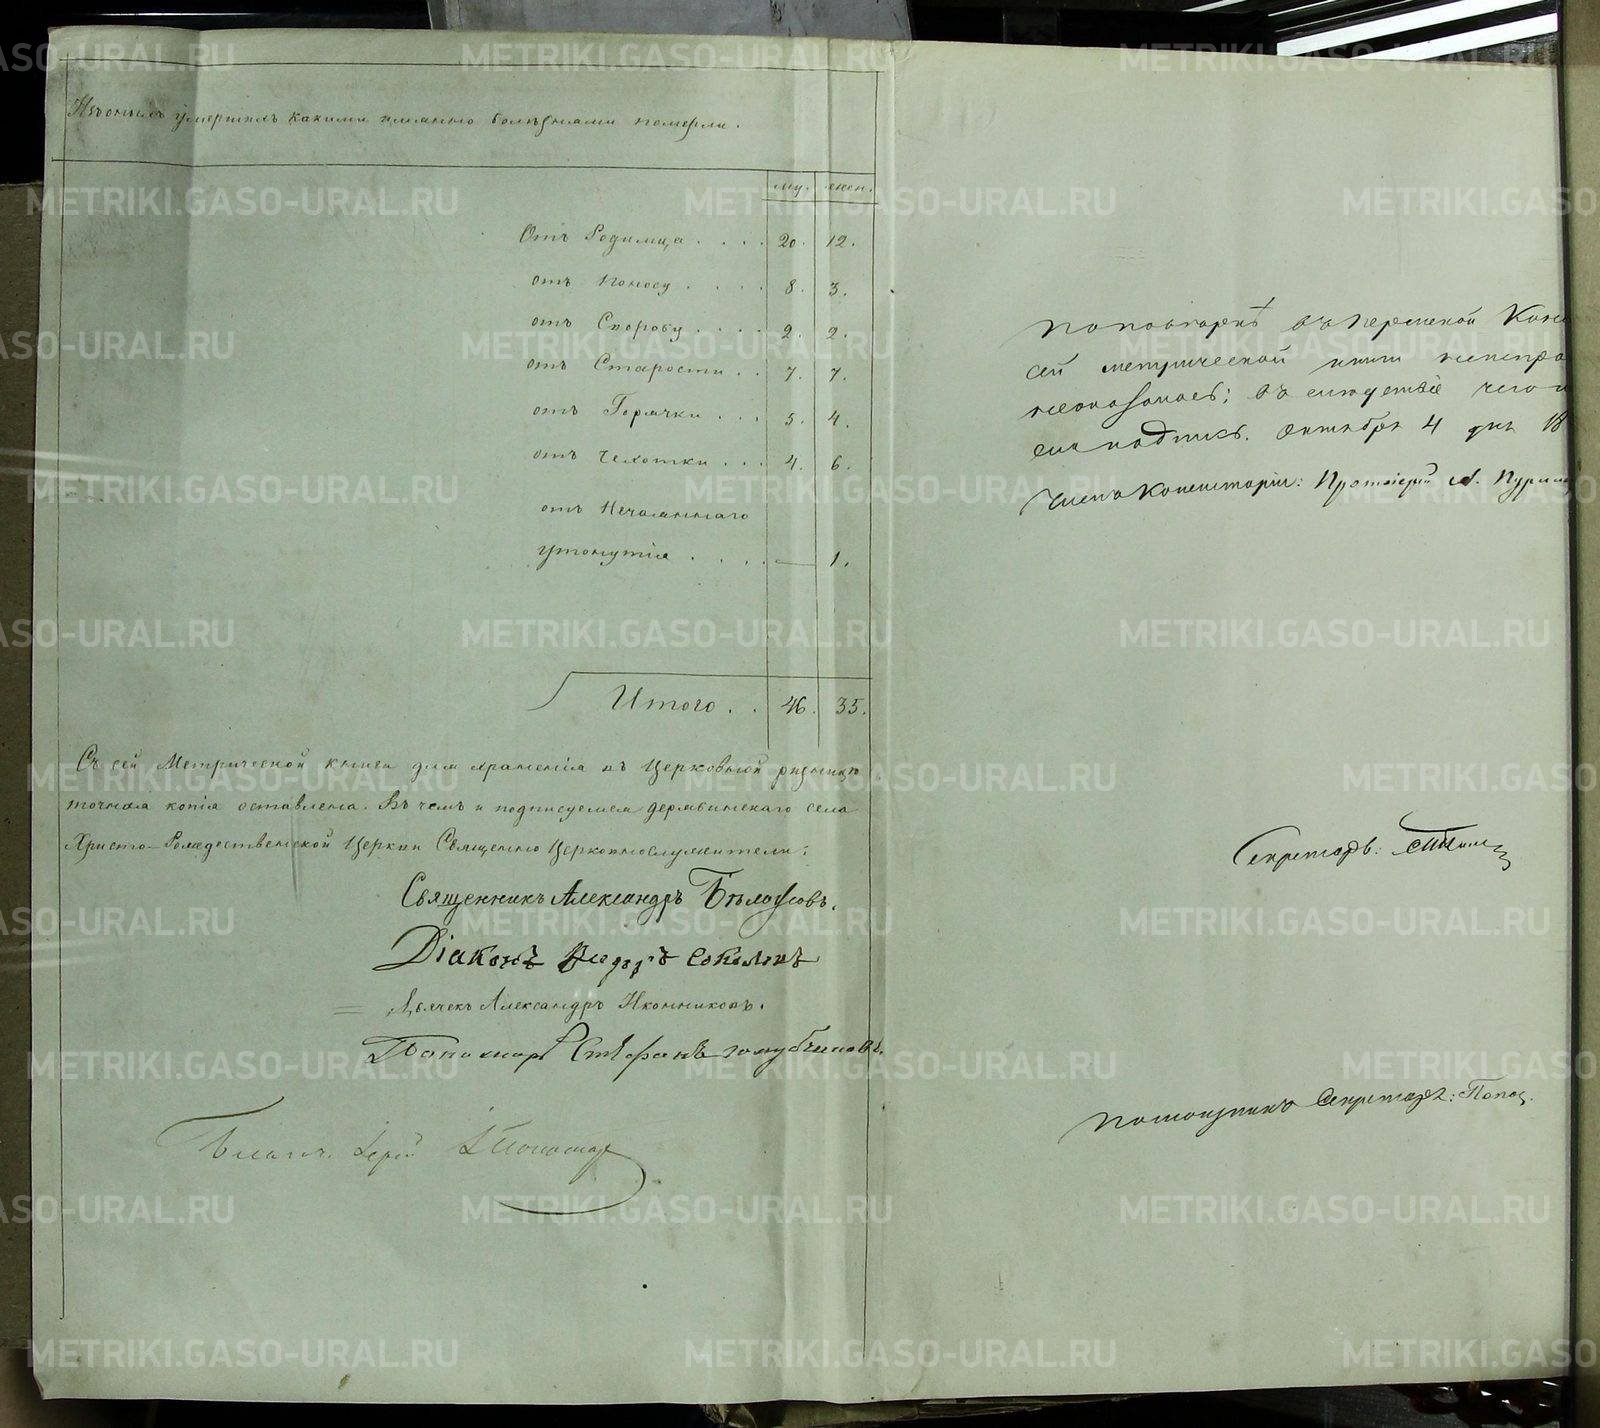 Изъ оныхъ умершихъ какими именно болѣзнами померли.
му. жен.
Отъ Родимца . . . . 20. 12.
отъ Поносу . . . . 8. 3.
отъ Скорбу . . . . 2. 2.
отъ Старости . . 7. 7.
отъ Горячки . . . 5. 4.
отъ Чехотки . . . 4. 6.
отъ Нечаяннаго
утонутія . . . . — 1.
Итого . . 46. 35.
Съ сей Метрической книги для храненія въ Церковной ризницѣ
точная копія оставлена. Въ чемъ и подписуемся
села
Христо-Рождественской Церкви Священно Церковнослужители:
Священникъ Александръ Бѣлоусовъ.
Діаконъ Соколовъ
Дьячекъ Александръ Иконниковъ.
Пономарь Стефанъ
Благоч. Іерей
По повѣркѣ въ Пермской Конс
сей метрической книги неиспра
не оказалось; въ слѣдствіе чего и
сія надпись. Октября 4 дня 18
Членъ Консисторіи: Протоіерей
Секретарь:
Помощникъ Секретаря: Попов
METRIKI.GASO-URAL.RU